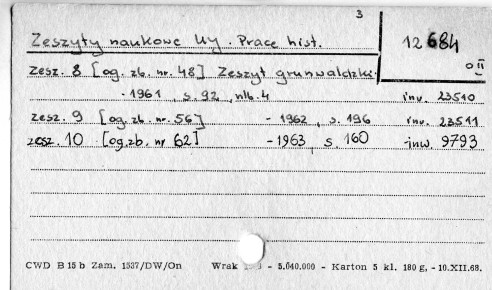 3
Zeszyty naukowe UJ. Prace hist.
12 684
O II
Zesz. 8 [og. zb. nr. 48] Zeszyt grunwaldzki.
- 1961, s. 92, nlb. 4 inv. 23510
zesz. 9 [og. zb. nr. 56] - 1962, s. 196 inv. 23511
zesz. 10 [og. zb. nr 62] - 1963, s 160 inw. 9793
CWD B 15 b Zam. 1537/DW/On Wrak - 5.040.000 - Karton 5 kl. 180 g, - 10.XII.68.